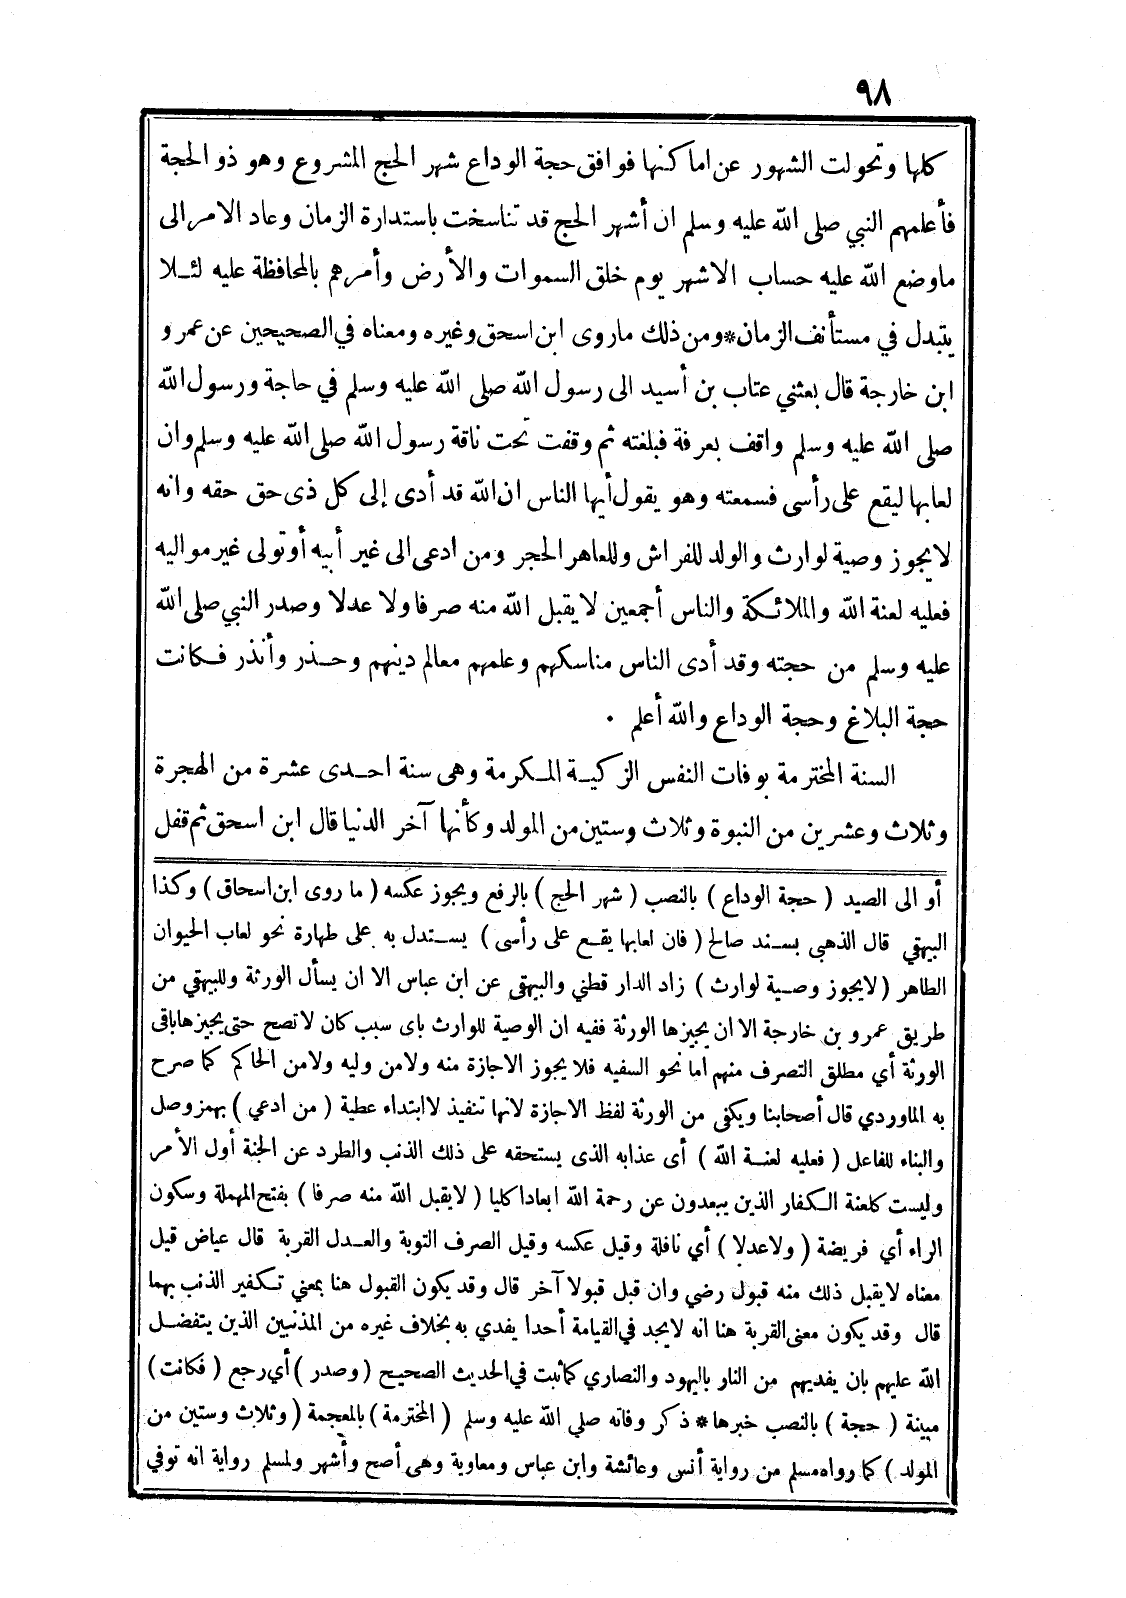 ٩٨
كلها وتحولت الشهور عن اماكنها فوافق حجة الوداع شهر الحج المشروع وهو ذو الحجة
فأعلمهم النبي صلى الله عليه وسلم ان أشهر الحج قد تناسخت باستدارة الزمان وعاد الامر الى
ماوضع الله عليه حساب الاشهر يوم خلق السموات والأرض وأمرهم بالمحافظة عليه لئلا
يتبدل في مستأنف الزمان*ومن ذلك ماروى ابن اسحق وغيره ومعناه في الصحيحين عن عمرو
ابن خارجة قال بعثني عتاب بن أسيد الى رسول الله صلى الله عليه وسلم في حاجة ورسول الله
صلى الله عليه وسلم واقف بعرفة فبلغته ثم وقفت تحت ناقة رسول الله صلى الله عليه وسلم وان
لعابها ليقع على رأسى فسمعته وهو يقول أيها الناس ان الله قد أدى إلى كل ذى حق حقه وانه
لايجوز وصية لوارث والولد للفراش وللعاهر الحجر ومن ادعى الى غير أبيه أو تولى غير مواليه
فعليه لعنة الله والملائكة والناس أجمعين لايقبل الله منه صرفا ولا عدلا وصدر النبي صلى الله
عليه وسلم من حجته وقد أدى الناس مناسكهم وعلمهم معالم دينهم وحذر وأنذر فكانت
حجة البلاغ وحجة الوداع والله أعلم .
السنة المخترمة بوفات النفس الزكية المكرمة وهى سنة احدى عشرة من الهجرة
وثلاث وعشرين من النبوة وثلاث وستين من المولد وكأنها آخر الدنيا قال ابن اسحق ثم قفل
أو الى الصيد ( حجة الوداع ) بالنصب ( شهر الحج ) بالرفع ويجوز عكسه ( ما روى ابن اسحاق ) وكذا
البيهقي قال الذهبي بسند صالح ( فان لعابها يقع على رأسى ) يستدل به على طهارة نحو لعاب الحيوان
الطاهر ( لايجوز وصية لوارث ) زاد الدار قطني والبيهقي عن ابن عباس الا ان يسأل الورثة وللبيهقي من
طريق عمرو بن خارجة الا ان يجيزها الورثة ففيه ان الوصية للوارث باى سبب كان لاتصح حتى يجيزها باقى
الورثة أي مطلق التصرف منهم اما نحو السفيه فلا يجوز الاجازة منه ولامن وليه ولامن الحاكم كما صرح
به الماوردي قال أصحابنا ويكفى من الورثة لفظ الاجازة لانها تنفيذ لا ابتداء عطية ( من ادعي ) بهمز وصل
والبناء للفاعل ( فعليه لعنة الله ) أى عذابه الذى يستحقه على ذلك الذنب والطرد عن الجنة أول الأمر
وليست كلعنة الكفار الذين يبعدون عن رحمة الله ابعادا كليا ( لايقبل الله منه صرفا ) بفتح المهملة وسكون
الراء أي فريضة ( ولاعدلا ) أي نافلة وقيل عكسه وقيل الصرف التوبة والعدل القربة قال عياض قيل
معناه لايقبل ذلك منه قبول رضي وان قبل قبولا آخر قال وقد يكون القبول هنا بمعني تكفير الذنب بهما
قال وقد يكون معنى القربة هنا انه لايجد في القيامة أحدا يفدي به بخلاف غيره من المذنبين الذين يتفضل
الله عليهم بان يفديهم من النار باليهود والنصاري كما ثبت في الحديث الصحيح ( وصدر ) أي رجع ( فكانت )
مبينة ( حجة ) بالنصب خبرها* ذكر وفاته صلي الله عليه وسلم ( المخترمة ) بالمعجمة ( وثلاث وستين من
المولد ) كما رواه مسلم من رواية أنس وعائشة وابن عباس ومعاوية وهى أصح وأشهر ولمسلم رواية انه توفي